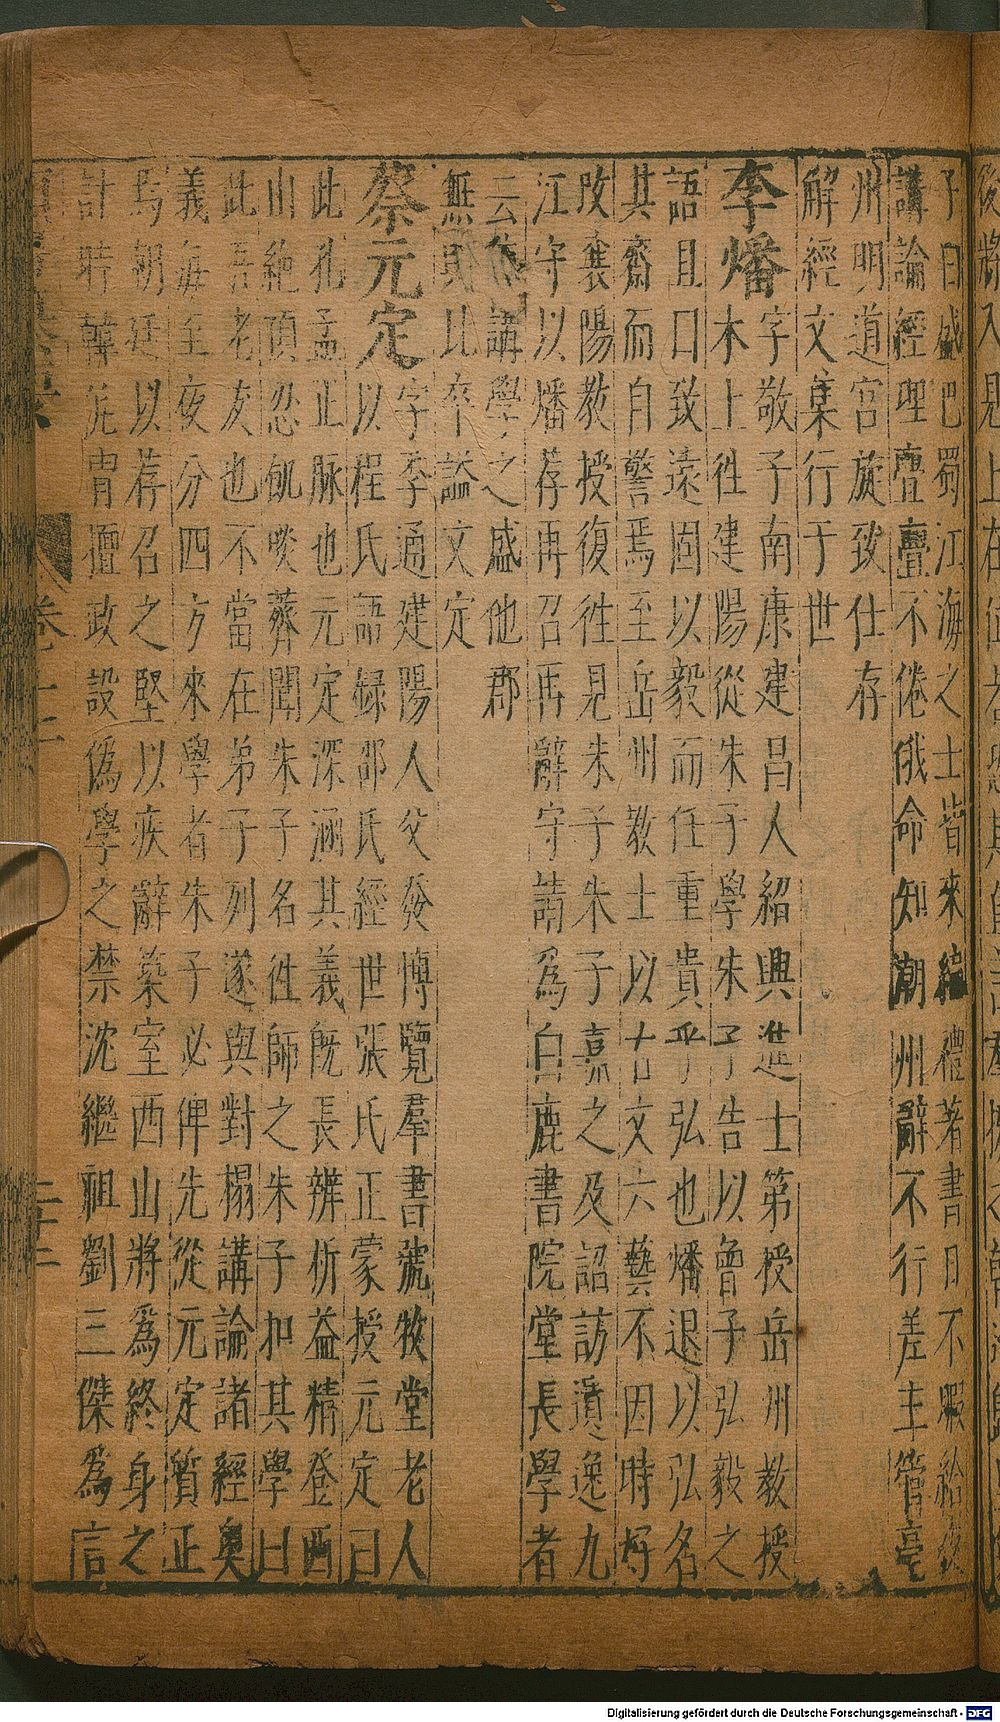 子曰盛巴蜀江海之士皆來編禮著書日不暇給夜
講論經理亹亹不倦俄命知潮州辭不行差主管亳
州明道宮旋致仕存
解經文集行于世
李燔字敬子南康建昌人紹興進士第授岳州教授
木上徃建陽從朱子學朱子告以曾子弘毅之
語且曰致遠固以毅而任重貴乎弘也燔退以弘名
其齋而自警焉至岳州教士以古文六藝不因時好
改襄陽教授復徃見朱子朱子嘉之及詔訪遺逸九
江守以燔荐再召再辭守請爲白鹿書院堂長學者
云 講學之盛他郡
無與比卒謚文定
蔡元定字季通建陽人父發博覽羣書號牧堂老人
以程氏語録邵氏經世張氏正蒙授元定曰
此孔孟正脉也元定深涵其義旣長辨析益精登西
山絶頂忍飢啖薺聞朱子名徃師之朱子扣其學曰
此吾老友也不當在弟子列遂與對榻講論諸經奥
義每至夜分四方來學者朱子必俾先從元定質正
焉朝廷以荐召之堅以疾辭築室西山將爲終身之
計時韓侂胄擅政設僞學之禁沈繼祖劉三傑爲言
卷十二
Digitalisierung gefördert durch die Deutsche Forschungsgemeinschaft - DFG